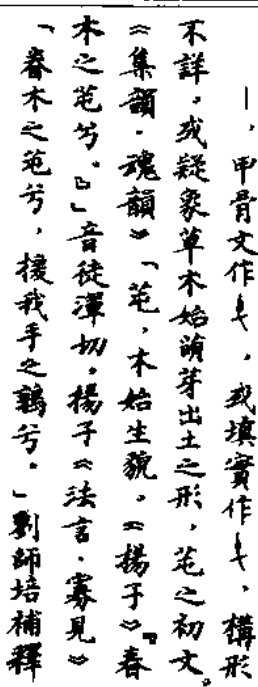 一，甲骨文作，或填實作，構形
不詳。或疑象草木始萌芽出土之形，芚之初文。
《集韻·魂韻》「芚，木始生貌。《揚子》『春
木之芚兮。』」音徒渾切。揚子《法言·寡見》
「春木之芚兮，援我手之鶉兮。」劉師培補釋